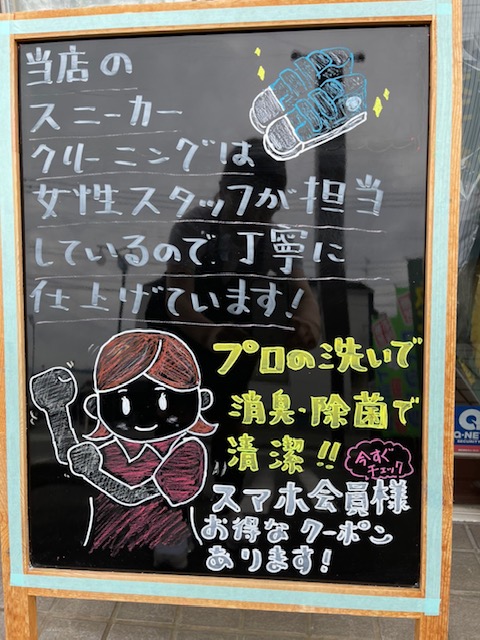 当店の
スニーカー
クリーニングは
女性スタッフが担当
しているので丁寧に
仕上げています!
プロの洗いで
消臭・除菌で
清潔!!
今すぐ
チェック
スマホ会員様
お得なクーポン
あります!